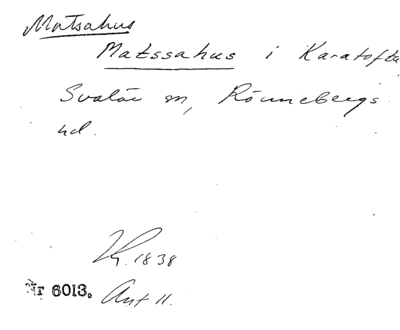 Matsahus
Matssahus i Karatofta
Svalöv sn, Rönnebergs
hd.
1838
Nr 6013. Ant 11.